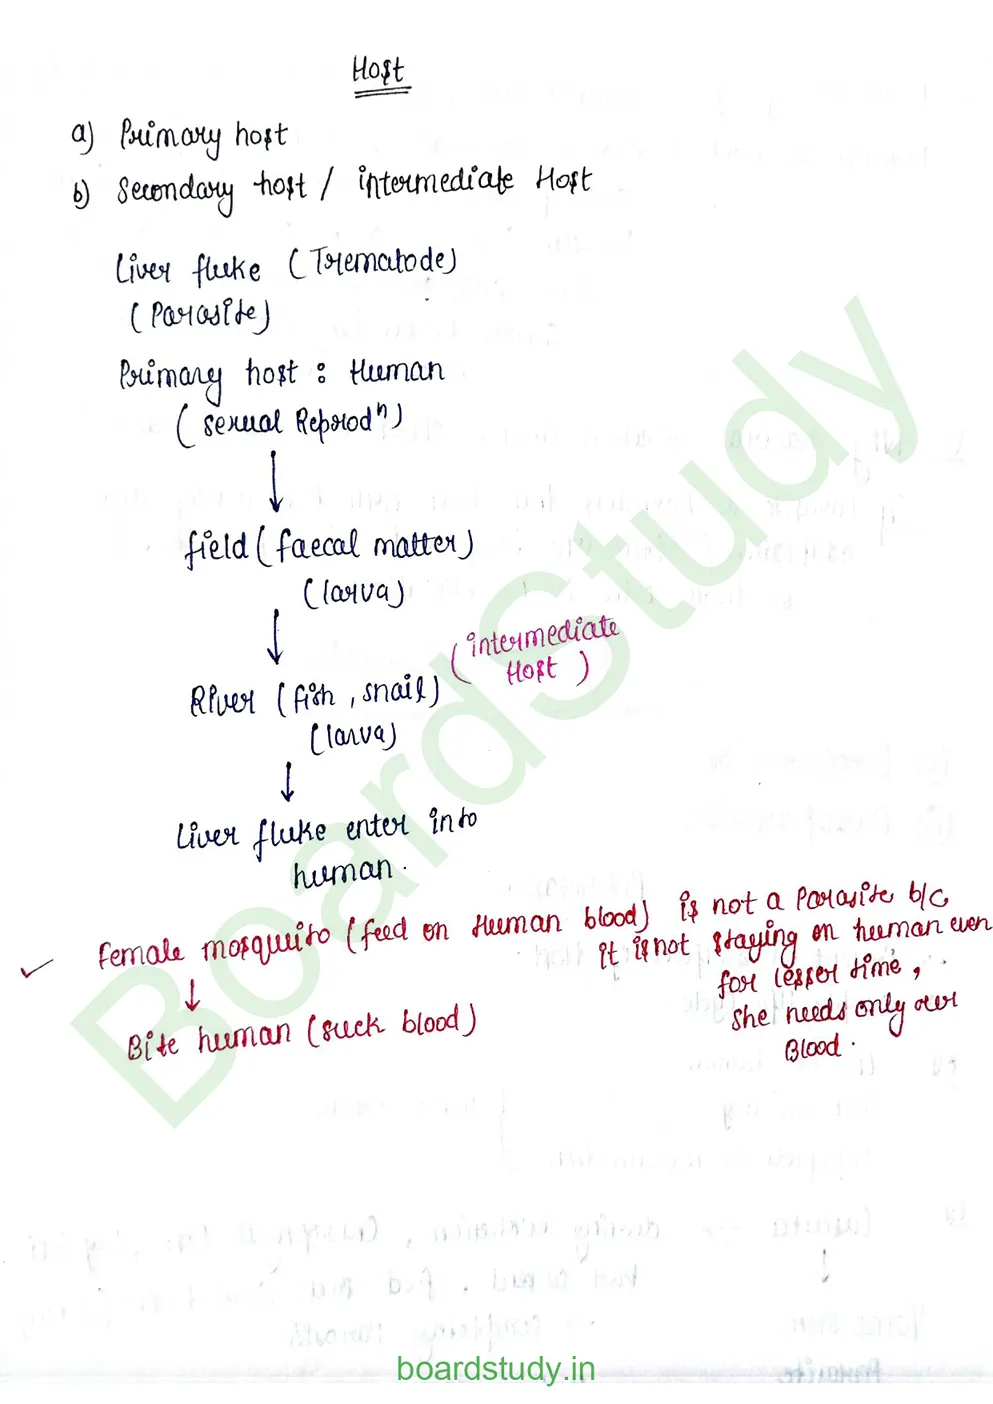 Host
a) Primary host
b) Secondary host / intermediate Host
Liver fluke (Trematode)
(Parasite)
Primary host : Human
(sexual Reprodⁿ)
field (faecal matter)
(larva)
(intermediate
Host)
River (fish, snail)
(larva)
Liver fluke enter into
human.
female mosquito (feed on Human blood) is not a Parasite b/c
it is not staying on human even
for lesser time,
she needs only our
Blood.
Bite human (suck blood)
BoardStudy
boardstudy.in